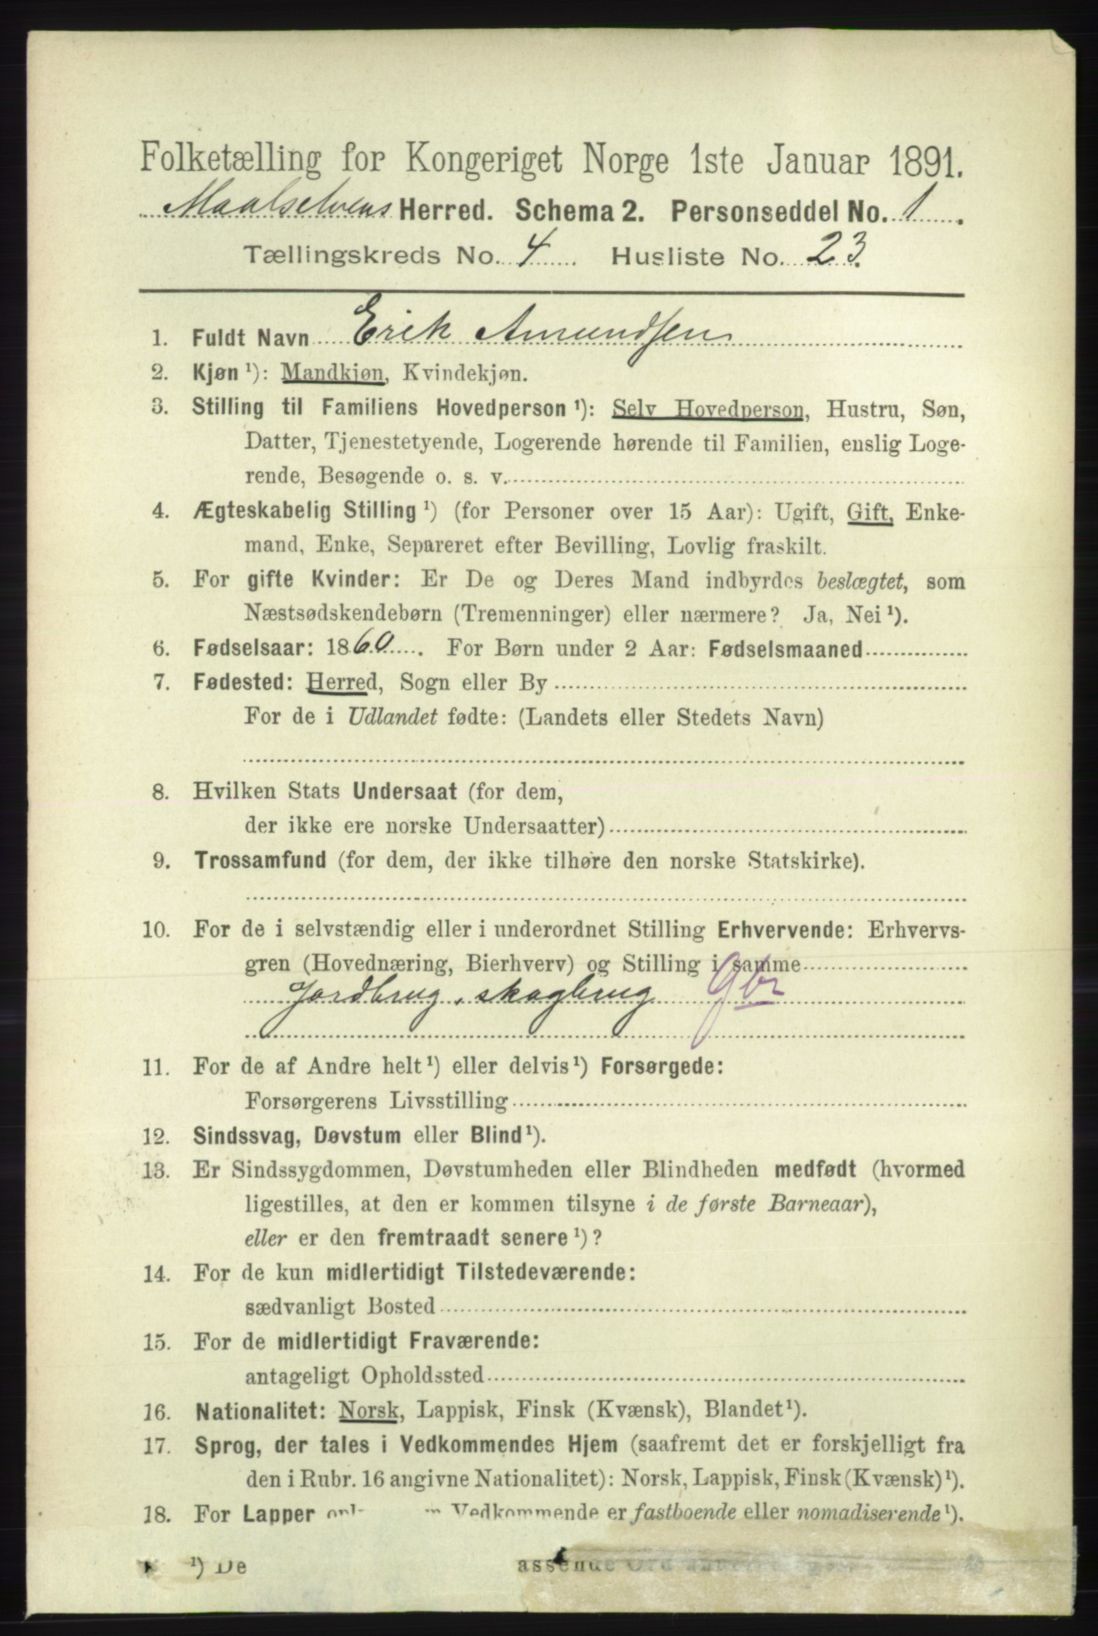 Folketælling for Kongeriget Norge 1ste Januar 1891.
Maalselvens Herred. Schema 2. Personseddel No. 1.
Tællingskreds No. 4 Husliste No. 23.
1. Fuldt Navn Erik Amundsen
2. Kjøn ¹): Mandkjøn, Kvindekjøn.
3. Stilling til Familiens Hovedperson ¹): Selv Hovedperson, Hustru, Søn,
Datter, Tjenestetyende, Logerende hørende til Familien, enslig Loge-
rende, Besøgende o. s. v.
4. Ægteskabelig Stilling ¹) (for Personer over 15 Aar): Ugift, Gift, Enke-
mand, Enke, Separeret efter Bevilling, Lovlig fraskilt.
5. For gifte Kvinder: Er De og Deres Mand indbyrdes beslægtet, som
Næstsødskendebørn (Tremenninger) eller nærmere? Ja, Nei ¹).
6. Fødselsaar: 1860. For Børn under 2 Aar: Fødselsmaaned
7. Fødested: Herred, Sogn eller By
For de i Udlandet fødte: (Landets eller Stedets Navn)
8. Hvilken Stats Undersaat (for dem,
der ikke ere norske Undersaatter)
9. Trossamfund (for dem, der ikke tilhøre den norske Statskirke).
10. For de i selvstændig eller i underordnet Stilling Erhvervende: Erhvervs-
gren (Hovednæring, Bierhverv) og Stilling i samme
Jordbrug, skogbrug Gbr
11. For de af Andre helt ¹) eller delvis ¹) Forsørgede:
Forsørgerens Livsstilling
12. Sindssvag, Døvstum eller Blind ¹).
13. Er Sindssygdommen, Døvstumheden eller Blindheden medfødt (hvormed
ligestilles, at den er kommen tilsyne i de første Barneaar),
eller er den fremtraadt senere ¹)?
14. For de kun midlertidigt Tilstedeværende:
sædvanligt Bosted
15. For de midlertidigt Fraværende:
antageligt Opholdssted
16. Nationalitet: Norsk, Lappisk, Finsk (Kvænsk), Blandet ¹).
17. Sprog, der tales i Vedkommendes Hjem (saafremt det er forskjelligt fra
den i Rubr. 16 angivne Nationalitet): Norsk, Lappisk, Finsk (Kvænsk) ¹).
18. For Lapper Vedkommende er fastboende eller nomadiserende ¹).
¹) De assende Ord